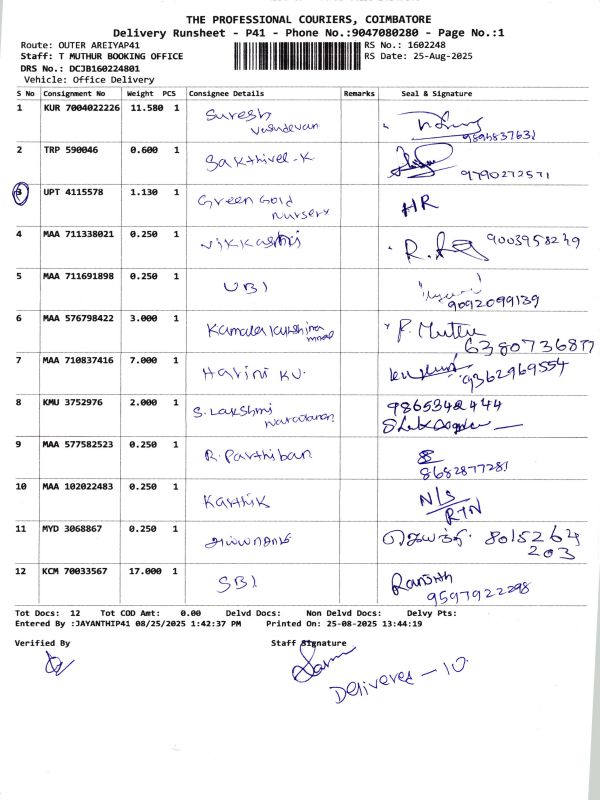 THE PROFESSIONAL COURIERS, COIMBATORE
Delivery Runsheet - P41 - Phone No.:9047080280 - Page No.:1
Route: OUTER AREIYAP41 RS No.: 1602248
Staff: T MUTHUR BOOKING OFFICE RS Date: 25-Aug-2025
DRS No.: DCJB160224801
Vehicle: Office Delivery
S No Consignment No Weight PCS Consignee Details Remarks Seal & Signature
1 KUR 7004022226 11.580 1 Suresh
Vasudevan
2 TRP 590046 0.600 1 Sakthivel-K 9790272571
3 UPT 4115578 1.130 1 Green Gold HR
Nursery
4 MAA 711338021 0.250 1 9003958249
5 MAA 711691898 0.250 1 UBI
9092099139
6 MAA 576798422 3.000 1 P. Muthu
6380736877
7 MAA 710837416 7.000 1 Harini KV. 9362969554
8 KMU 3752976 2.000 1 S. Lakshmi 9865342444
9 MAA 577582523 0.250 1 R. Parthiban
8682877281
10 MAA 102022483 0.250 1 Karthik N/S
RTN
11 MYD 3068867 0.250 1 8015264
203
12 KCM 70033567 17.000 1 SBI Ranjith
9597922298
Tot Docs: 12 Tot COD Amt: 0.00 Delvd Docs: Non Delvd Docs: Delvy Pts:
Entered By :JAYANTHIP41 08/25/2025 1:42:37 PM Printed On: 25-08-2025 13:44:19
Verified By Staff Signature
Delivered - 10